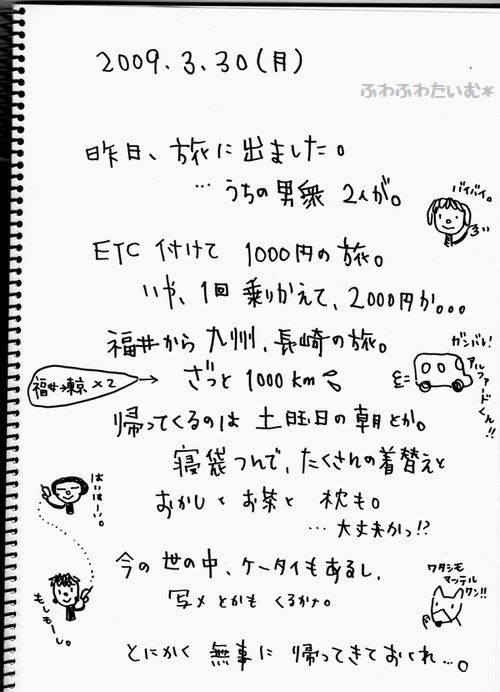 2009.3.30(月)
ふわふわたいむ*
昨日、旅に出ました。
…うちの男衆 2人が。
バイバイ。
ETC 付けて 1000円の旅。
いや、1回 乗りかえて、2000円か。。。
福井から 九州、長崎の旅。
ガンバレ!
アルファードくん!!
福井→東京×2
ざっと 1000km
帰ってくるのは 土曜日の朝とか。
寝袋つんで、たくさんの着替えと
はいはーい。
おかしと お茶と 枕も。
…大丈夫かっ!?
今の世の中、ケータイもあるし、
ワタシモ
マッテル
ワン!!
写メとかも くるかナ。
もしもーし。
とにかく 無事に 帰ってきておくれ…。